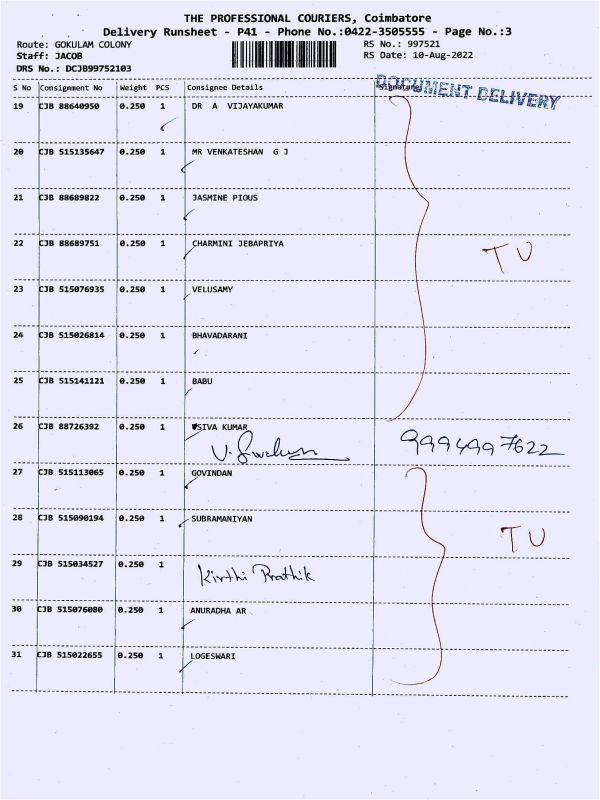 THE PROFESSIONAL COURIERS, Coimbatore
Delivery Runsheet - P41 - Phone No.:0422-3505555 - Page No.:3
Route: GOKULAM COLONY RS No.: 997521
Staff: JACOB RS Date: 10-Aug-2022
DRS No.: DCJB99752103
S No Consignment No Weight PCS Consignee Details Signature
DOCUMENT DELIVERY
19 CJB 88640950 0.250 1 DR A VIJAYAKUMAR
20 CJB 515135647 0.250 1 MR VENKATESHAN G J
21 CJB 88689822 0.250 1 JASMINE PIOUS
22 CJB 88689751 0.250 1 CHARMINI JEBAPRIYA
TU
23 CJB 515076935 0.250 1 VELUSAMY
24 CJB 515026814 0.250 1 BHAVADARANI
25 CJB 515141121 0.250 1 BABU
26 CJB 88726392 0.250 1 VSIVA KUMAR
9994997622
27 CJB 515113065 0.250 1 GOVINDAN
28 CJB 515090194 0.250 1 SUBRAMANIYAN
TU
29 CJB 515034527 0.250 1 Kirthi Prathik
30 CJB 515076080 0.250 1 ANURADHA AR
31 CJB 515022655 0.250 1 LOGESWARI